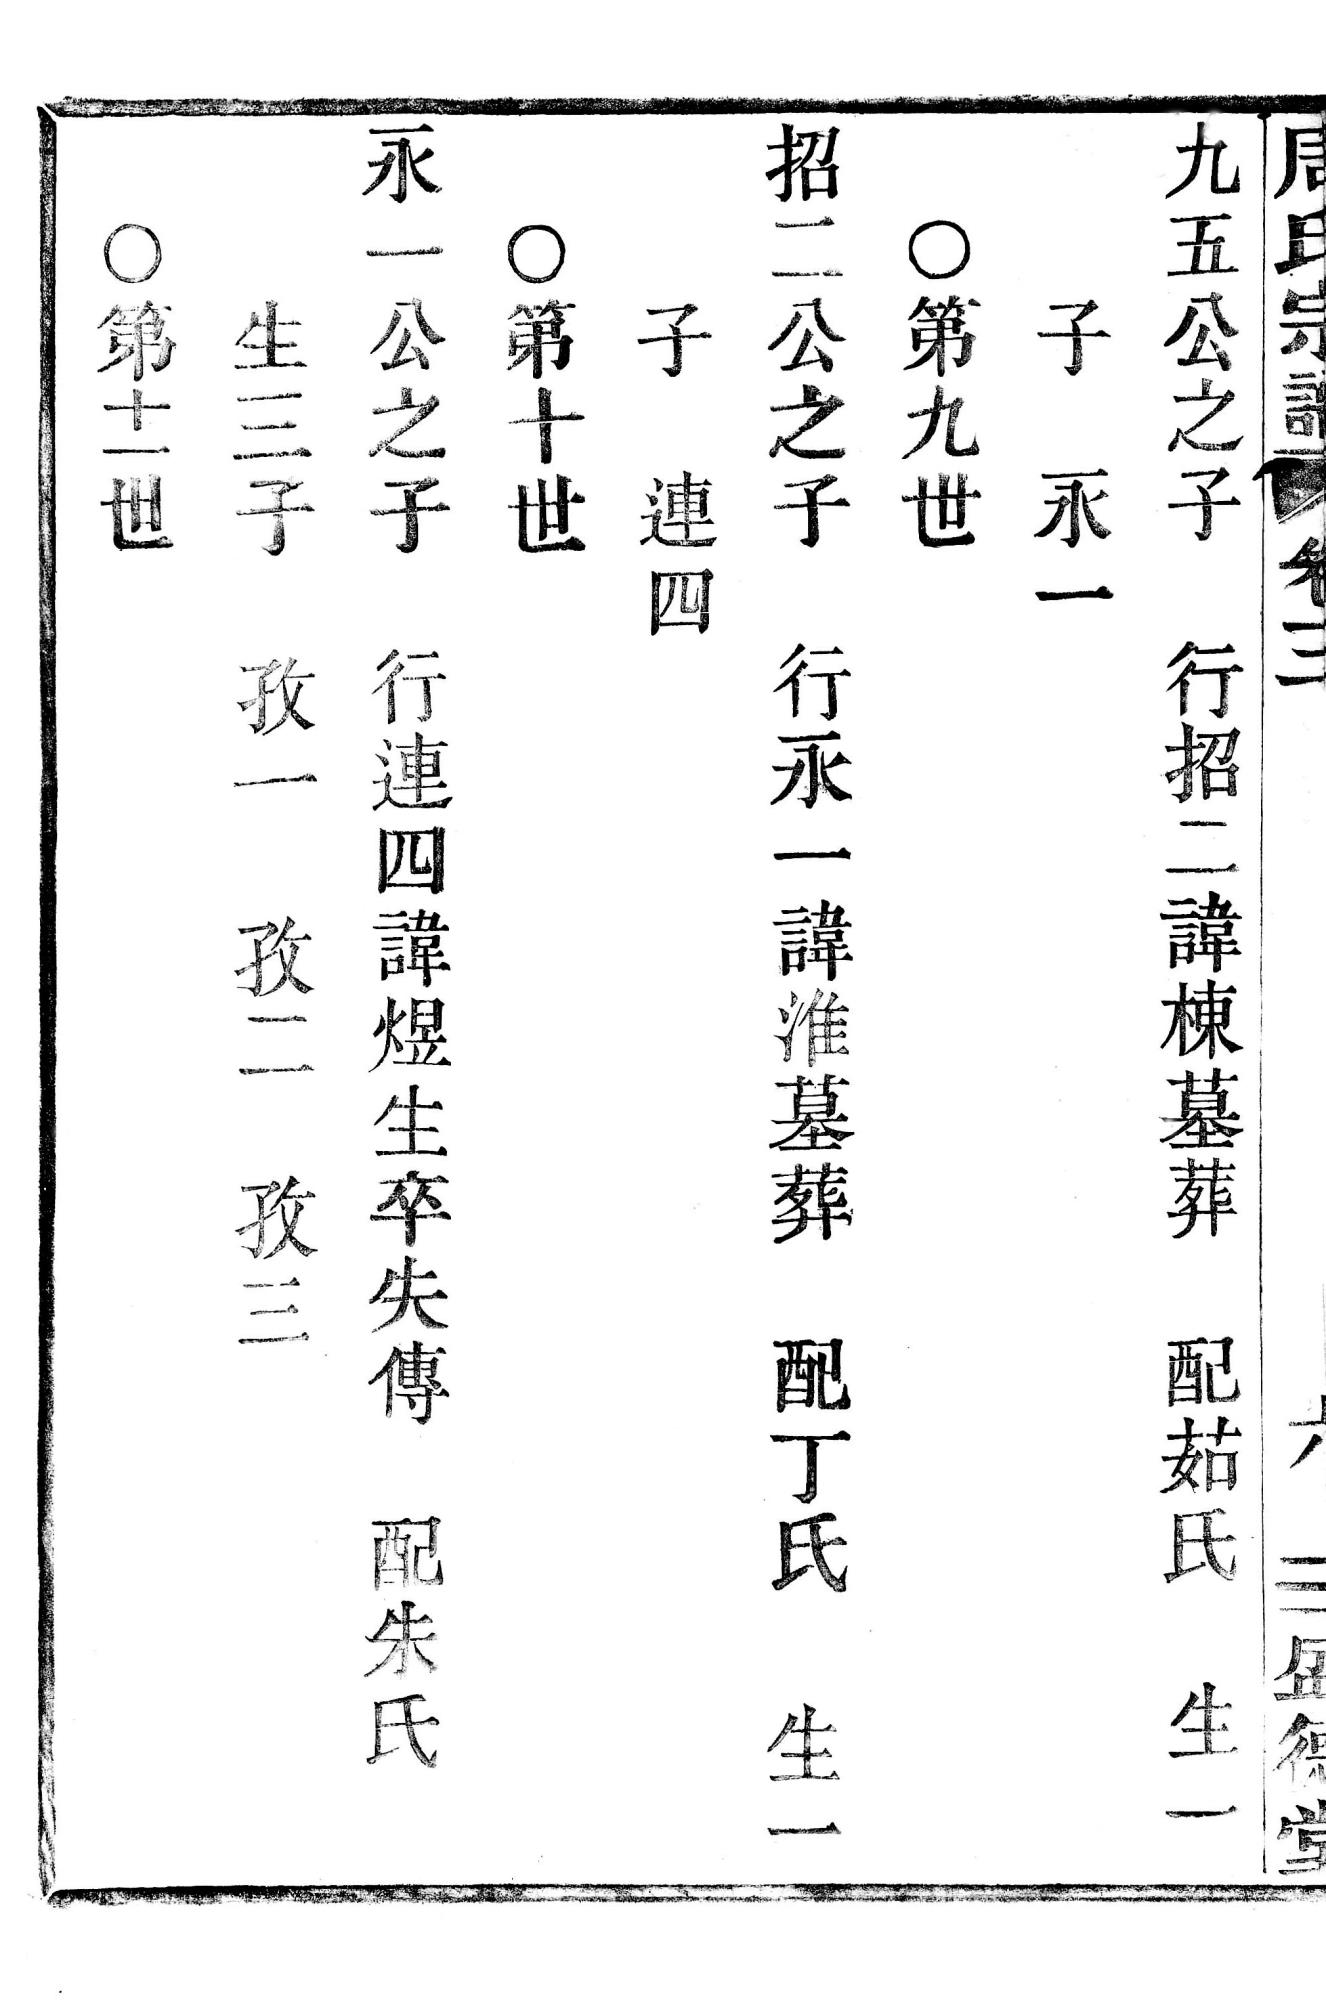 周氏宗譜 卷三 六 三 盛德堂
九五公之子 行招二諱棟墓葬 配茹氏 生一
子 永一
〇第九世
招二公之子 行永一諱淮墓葬 配丁氏 生一
子 連四
〇第十世
永一公之子 行連四諱煜生卒失傳 配朱氏
生三子 孜一 孜二 孜三
〇第十一世